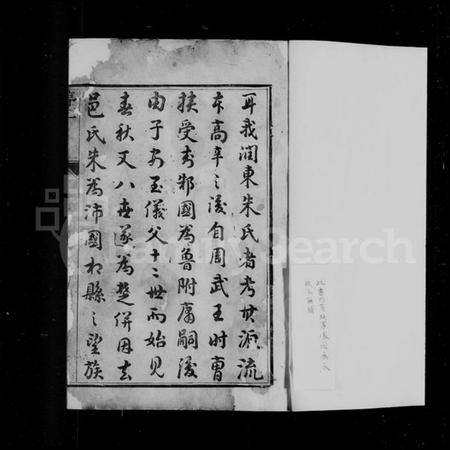 耳我潤東朱氏者考其源流
本高辛之後自周武王時曹
挾受封邾國為魯附庸嗣後
由子安至儀父十二世而始見
春秋又八世遂為楚併因去
邑氏朱為沛國相縣之望族
序
FamilySearch